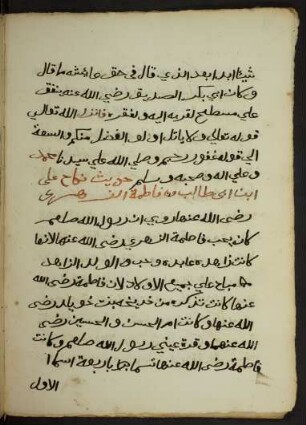 شيئا ابدا بعد الذي قال في حق عائشة ما قال
وكان ابي بكر الصديق رضي الله عنه ينفق
على مسطح لقربه اليه ولفقره فانزل الله تعالى
قوله تعالى ولا ياتل اولو الفضل منكم والسعة
الى قوله غفور رحيم وصلى الله على سيدنا محمد
وعلى اله وصحبه وسلم حديث نكاح علي
ابن ابي طالب مع فاطمة الزهرى
رضى الله عنها روي ان رسول الله صلعم
كان يحب فاطمة الزهرى رضى الله عنها لانها
كانت زاهدة عابدة وحب الولد الزاهد
مباح على جميع الاولاد لان فاطمة رضى الله
عنها كانت تذكره من خديجة بنت خويلد رضى
الله عنها وكانت ام الحسن والحسين رضى
الله عنهما وقرة عيني رسول الله صلعم وكانت
فاطمة رضى الله عنها تسما باربعة اسما
الاول